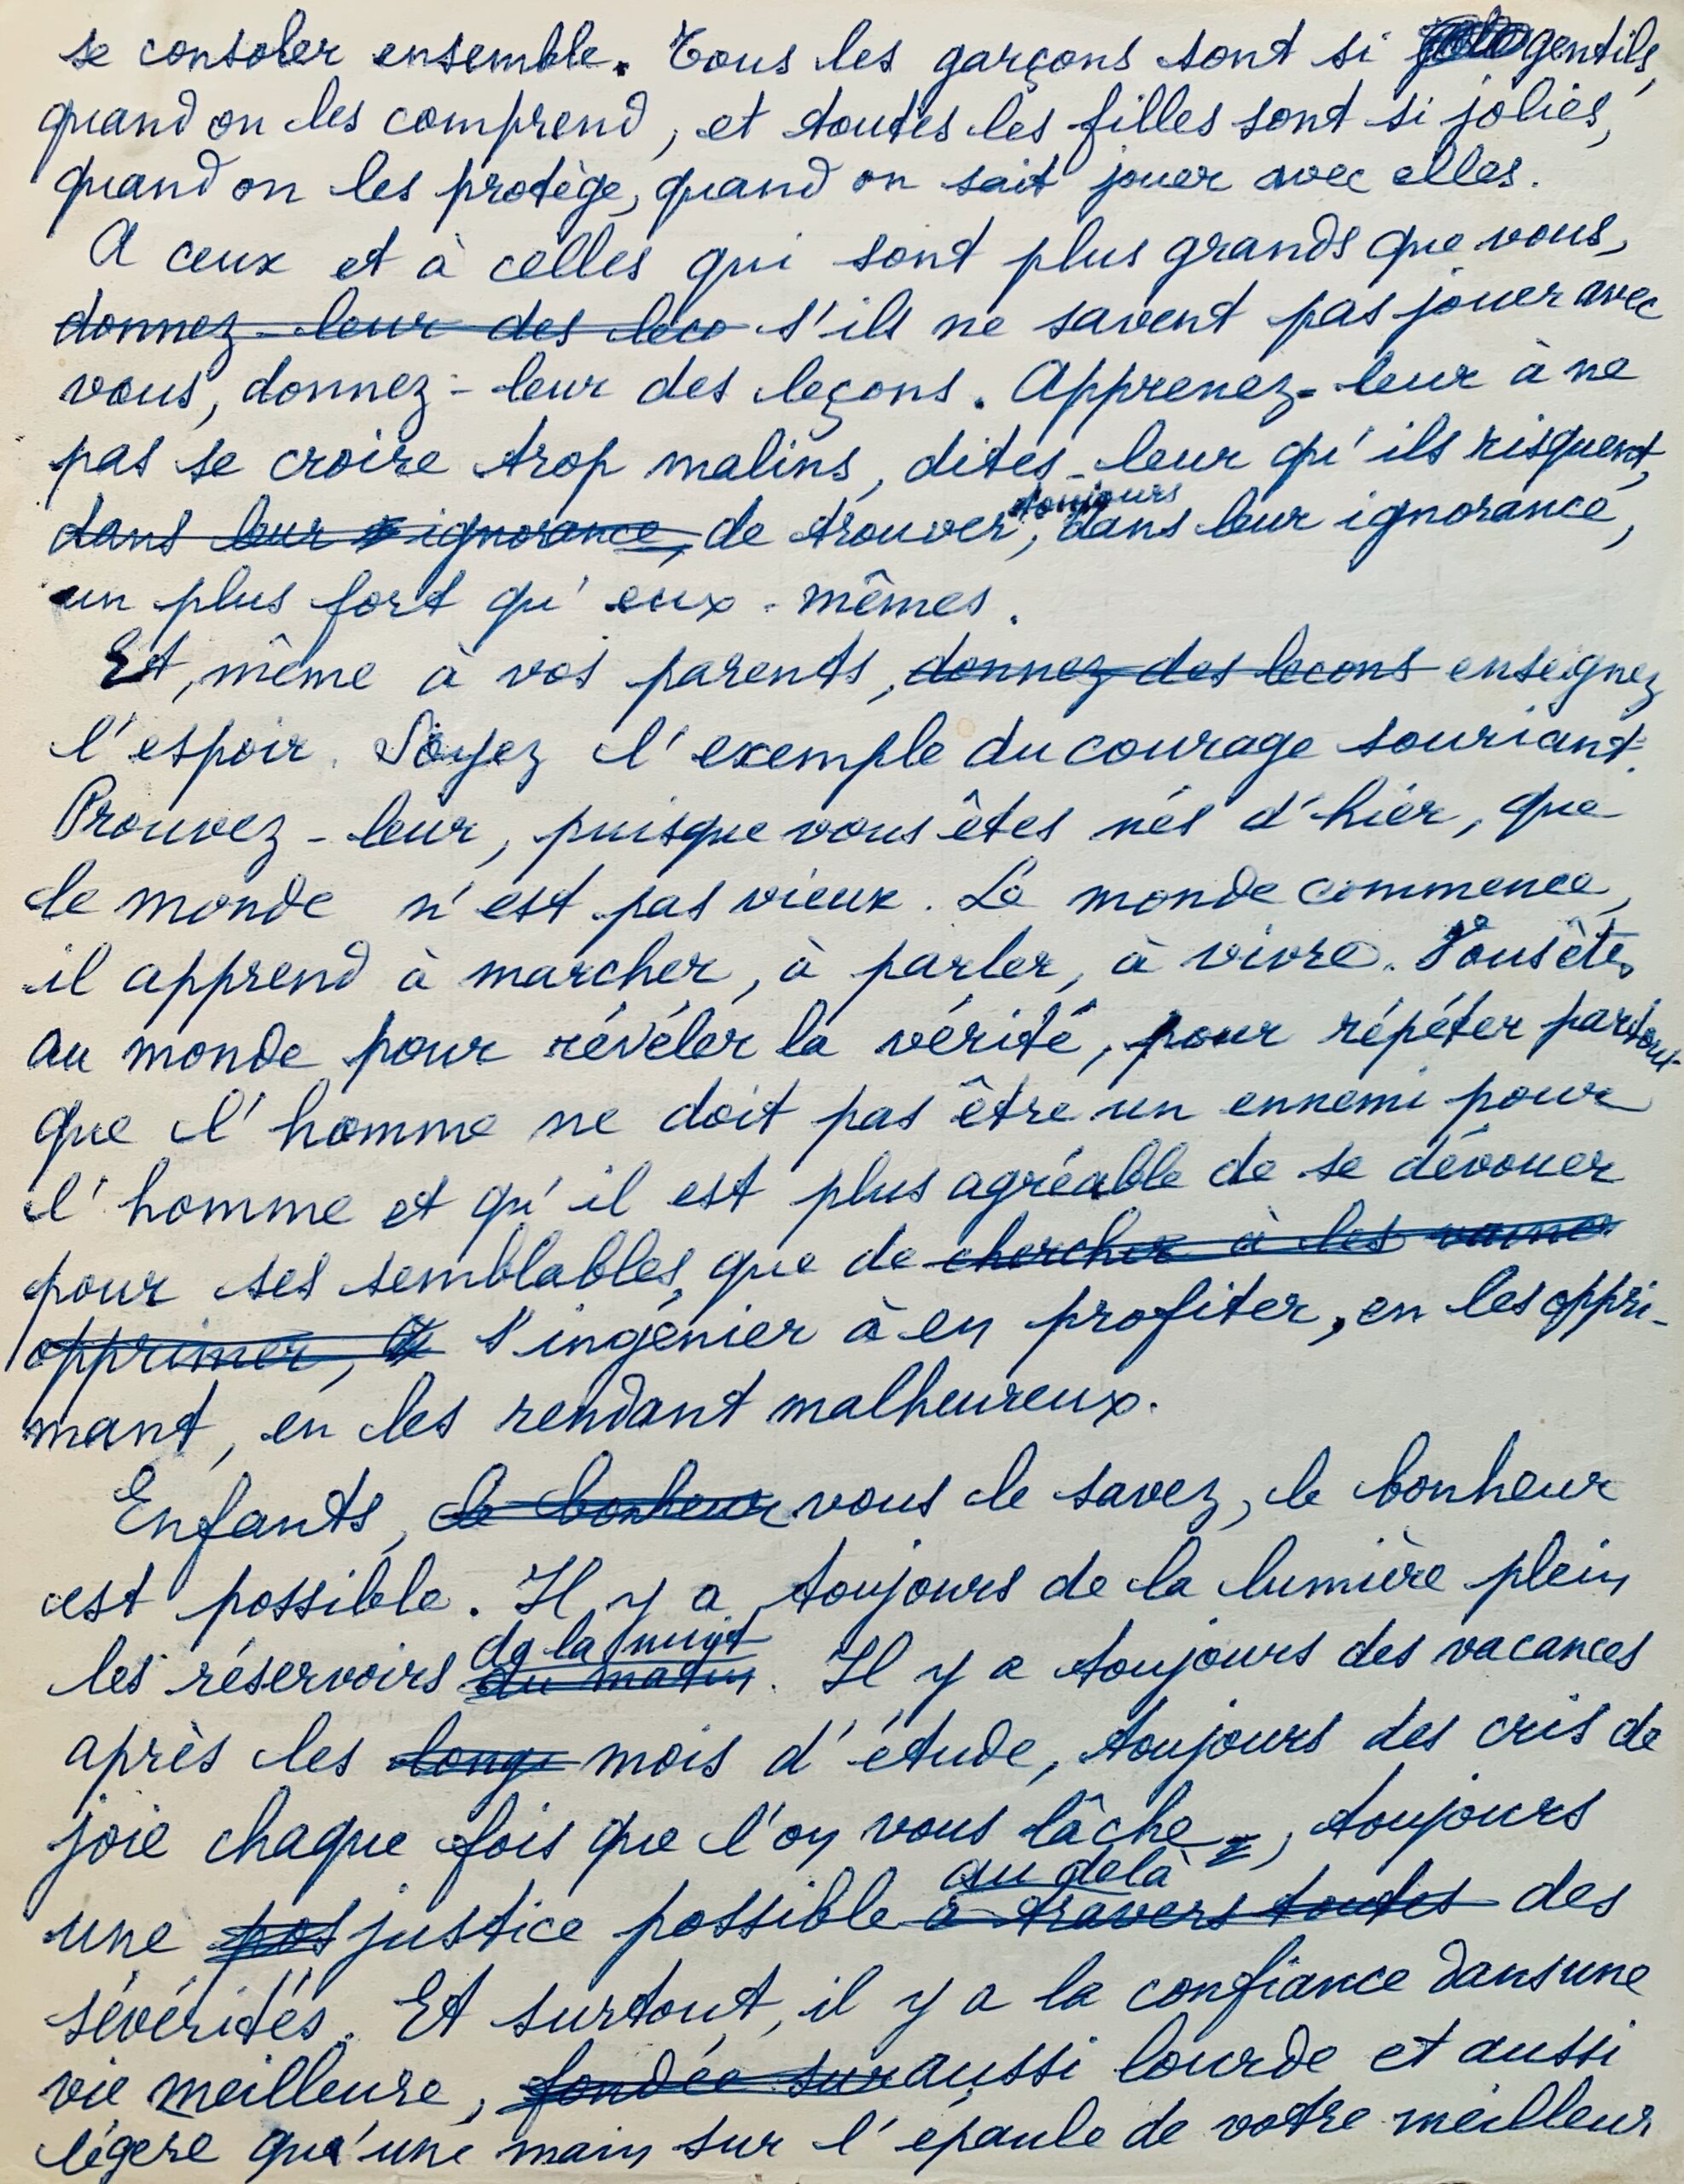 se consoler ensemble. Tous les garçons sont si gentils,
quand on les comprend, et toutes les filles sont si jolies,
quand on les protège, quand on sait jouer avec elles.
A ceux et à celles qui sont plus grands que vous,
donnez-leur des leco s'ils ne savent pas jouer avec
vous, donnez-leur des leçons. Apprenez-leur à ne
pas se croire trop malins, dites-leur qu'ils risquent,
toujours
dans leur ignorance, de trouver, dans leur ignorance,
un plus fort qu'eux-mêmes.
Et, même à vos parents, donnez des lecons enseignez
l'espoir. Soyez l'exemple du courage souriant.
Prouvez-leur, puisque vous êtes nés d'hier, que
le monde n'est pas vieux. Le monde commence,
il apprend à marcher, à parler, à vivre. Vous êtes
au monde pour révéler la vérité, pour répéter partout
que l'homme ne doit pas être un ennemi pour
l'homme et qu'il est plus agréable de se dévouer
pour ses semblables, que de chercher à les
opprimer, s'ingénier à en profiter, en les oppri-
mant, en les rendant malheureux.
Enfants, le bonheur vous le savez, le bonheur
est possible. Il y a toujours de la lumière plein
de la nuit
les réservoirs du matin. Il y a toujours des vacances
après les longs mois d'étude, toujours des cris de
joie chaque fois que l'on vous lâche, toujours
au delà
une pos justice possible à travers toutes des
sévérités. Et surtout, il y a la confiance dans une
vie meilleure, fondée sur aussi lourde et aussi
légère qu'une main sur l'épaule de votre meilleur